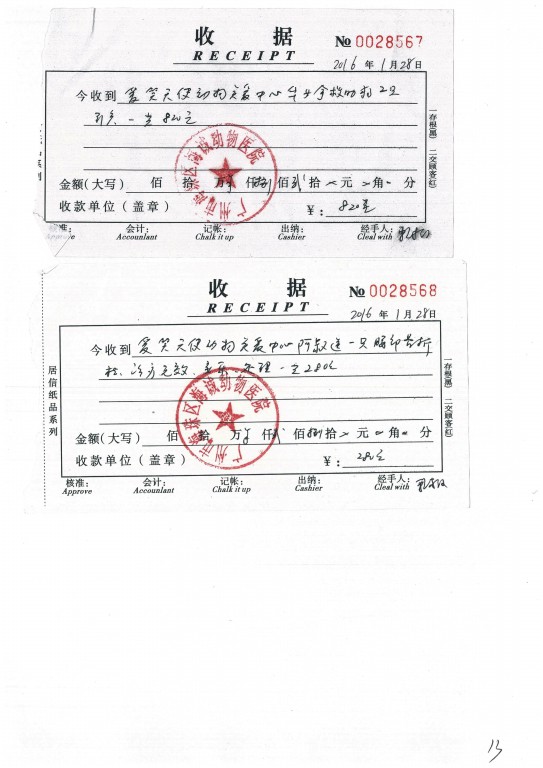 收 据
RECEIPT
No 0028567
2016 年 1 月 28 日
今收到 爱笑天使动物关爱中心
共 820元
金额（大写） 佰 拾 万 仟 捌 佰 贰 拾 元 角 分
收款单位（盖章） ￥： 820元
广州市海珠区海诚动物医院
核准： 会计： 记帐： 出纳： 经手人：
Approve Accountant Chalk it up Cashier Cleal with
一存根(黑) 二交顾客(红)
收 据
RECEIPT
No 0028568
2016 年 1 月 28 日
今收到 爱笑天使动物关爱中心 阿叔送一只脑部骨折
治疗无效 处理 280元
金额（大写） 佰 拾 万 仟 贰 佰 捌 拾 元 角 分
收款单位（盖章） ￥： 280元
广州市海珠区海诚动物医院
核准： 会计： 记帐： 出纳： 经手人：
Approve Accountant Chalk it up Cashier Cleal with
居信纸品系列
一存根(黑) 二交顾客(红)
13